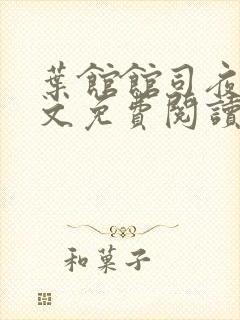 葉館館司夜
文免費閱讀
和菓子